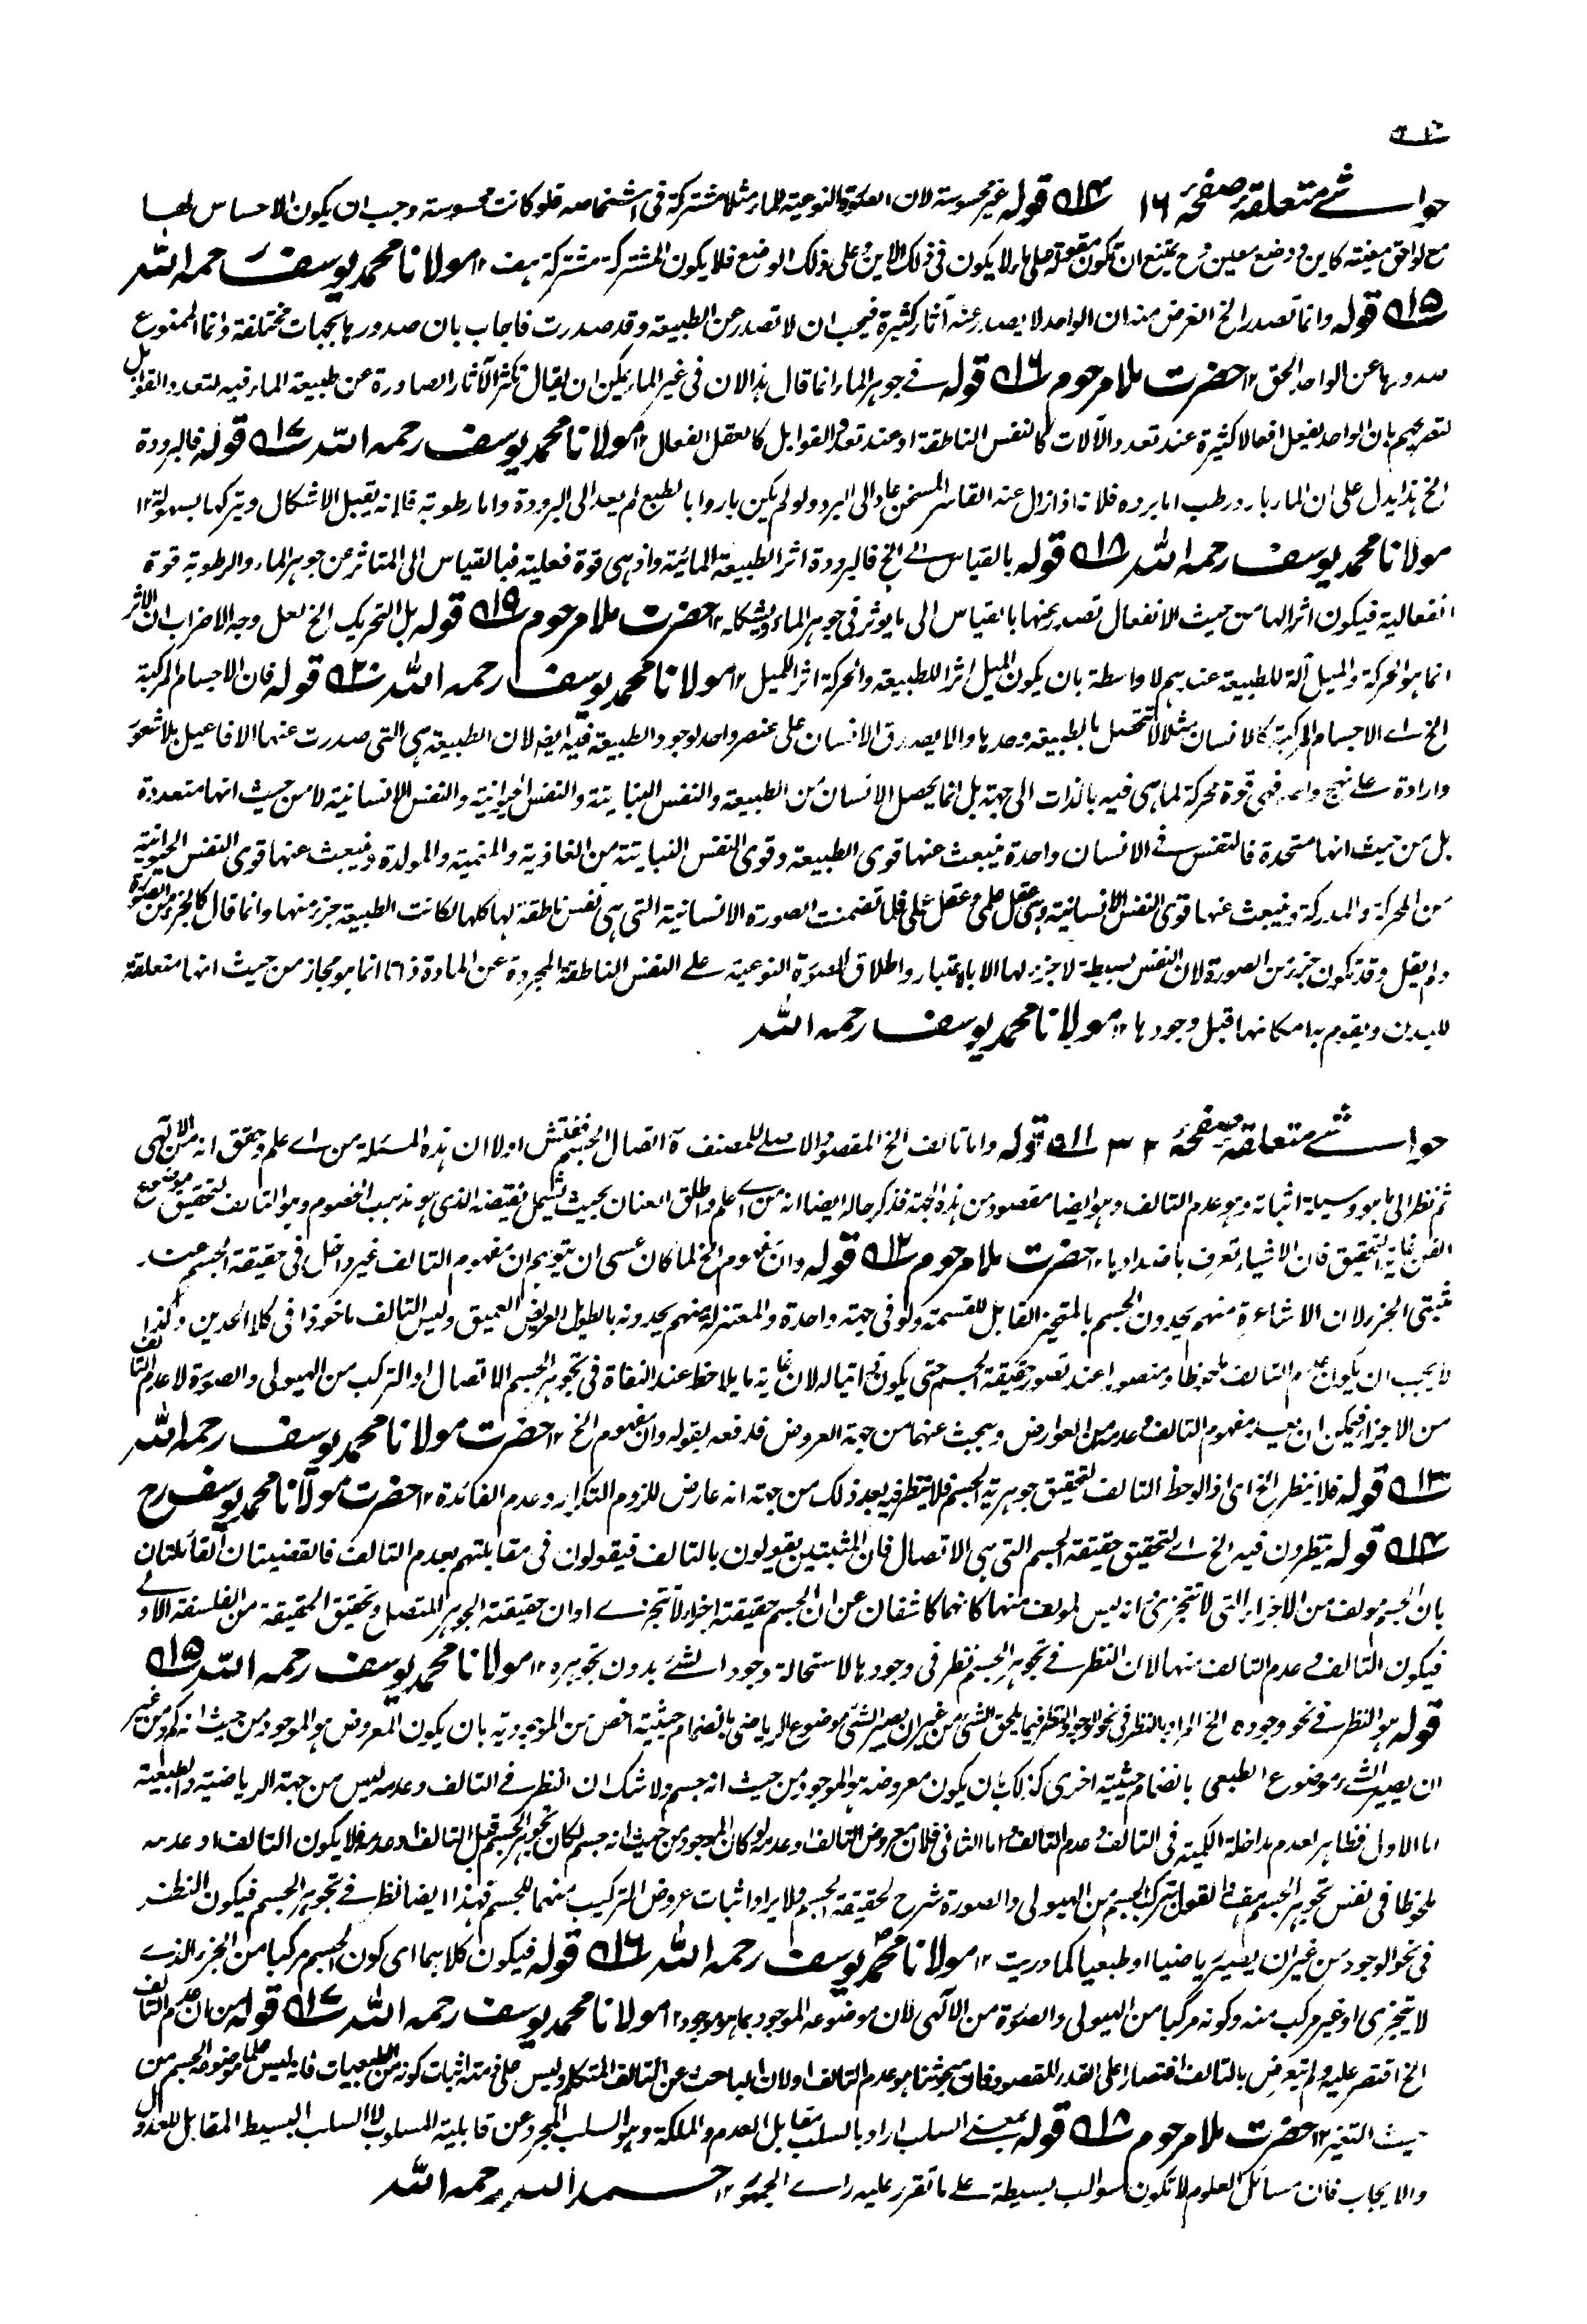 حواشے متعلقہ صفحہ ١٦ ١٤ قوله غير محسوسة لان الصورة النوعية للماء مثلا مشتركة فى اشخاصه فلو كانت محسوسة وجب ان يكون الاحساس لها
مع لواحق معينة كاين ووضع معين وح يمتنع ان تكون مقولة على ماء لا يكون فى ذلك الاين وعلى ذلك الوضع فلا يكون المشتركة مشتركة هف ١٢ مولانا محمد يوسف رحمه الله
١٥ قوله وانما تصدر الخ الغرض منه ان الواحد لا يصدر عنه آثار كثيرة فيجب ان لا تصدر عن الطبيعة وقد صدرت فاجاب بان صدورها بجهات مختلفة وانما الممنوع
صدورها عن الواحد الحق ١٢ حضرت ملا مرحوم ١٦ قوله فے جوهر الماء انما قال هذا لان فى غير الماء يمكن ان يقال تكثر الآثار الصادرة عن طبيعة الماء فيه لتعدد القوابل
لتصريحهم بان الواحد يفعل افعالا كثيرة عند تعدد الآلات كالنفس الناطقة او عند تعدد القوابل كالعقل الفعال ١٢ مولانا محمد يوسف رحمه الله ١٧ قوله فالبرودة
الخ هذا يدل على ان الماء بارد رطب اما برده فلانه اذا زال عنه القاسر المسخن عاد الى البرد ولو لم يكن باردا بالطبع لم يعد الى البرودة واما رطوبته فلانه يقبل الاشكال ويتركها بسهولة ١٢
مولانا محمد يوسف رحمه الله ١٨ قوله بالقياس الے الخ فالبرودة اثر الطبيعة المائية واذ هى قوة فعلية فبالقياس الى المتاثر عن جوهر الماء والرطوبة قوة
انفعالية فيكون اثرا لها من حيث الانفعال تصدر عنها بالقياس الى ما يوثر فى جوهر الماء ويشكله ١٢ حضرت ملا مرحوم ١٩ قوله بل التحريك الخ لعل وجه الاضراب ان الاثر
انما هو الحركة والميل آلة للطبيعة عندهم لا واسطة بان يكون الميل اثرا للطبيعة والحركة اثرا للميل ١٢ مولانا محمد يوسف رحمه الله ٢٠ قوله فان الاجسام المركبة
الخ اے الاجسام المركبة كالانسان مثلا لا تتحصل بالطبيعة وحدها والا يصدق الانسان على عنصر واحد لوجود الطبيعة فيه ايضا لان الطبيعة هى التى صدرت عنها الافاعيل بلا شعور
وارادة علے نهج واحد فهى قوة محركة لما هى فيه بالذات الى جهة بل انما يحصل الانسان من الطبيعة والنفس النباتية والنفس الحيوانية والنفس الانسانية لا من حيث انها متعددة
بل من حيث انها متحدة فالنفس فے الانسان واحدة ينبعث عنها قوى الطبيعة وقوى النفس النباتية من الغاذية والمنمية والمولدة وينبعث عنها قوى النفس الحيوانية
من المحركة والمدركة وينبعث عنها قوى النفس الانسانية وهى عقل علمى وعقل عملى فلما تضمنت الصورة الانسانية التى هى نفس ناطقة لها كلها لكانت الطبيعة جزء منها وانما قال كالجزء من الصورة
ولم يقل وقد تكون جزء من الصورة لان النفس بسيطة لا جزء لها الا بالاعتبار واطلاق الصورة النوعية علے النفس الناطقة المجردة عن المادة ذاتا انما هو مجاز من حيث انها متعلقة
للبدن ويقوم به امكانها قبل وجودها ١٢ مولانا محمد يوسف رحمه الله
حواشے متعلقہ صفحہ ٣٢ ١١ قوله واما تالف الخ المقصود الاصلے للمصنف اتصال الجسم ففتش اولا ان هذه المسئلة من اے علم وحقق انه من الالهى
ثم نظر الى ما هو وسيلة اثباته وهو عدم التالف وهو ايضا مقصود من هذه الجهة فذكر حاله ايضا انه من اے علم واطلق العنان بحيث يشمل نقيضه الذى هو مذهب الخصوم وهو التالف لتحقيق موضوع
الفن غاية التحقيق فان الاشياء تعرف باضدادها ١٢ حضرت ملا مرحوم ١٢ قوله وان مفهوم الخ لما كان عسى ان يتوهم ان مفهوم التالف غير داخل فى حقيقة الجسم عند
مثبتى الجزء لان الاشاعرة منهم يحدون الجسم بالمتحيز القابل للقسمة ولو فى جهة واحدة والمعتزلة منهم يحدونه بالطويل العريض العميق وليس التالف ماخوذا فى كلا الحدين وكذا
لا يجب ان يكون عدم التالف ملحوظا ومتصورا عند تصور حقيقة الجسم حتى يكون ذاتيا له لان غاية ما يلاحظ عند النفاة فى تجوهر الجسم الاتصال او التركب من الهيولى والصورة لا عدم التالف
من الاجزاء فيمكن ان يعد مفهوم التالف وعدمه من العوارض ويبحث عنها من جهة العروض فدفعه بقوله وان مفهوم الخ ١٢ حضرت مولانا محمد يوسف رحمه الله
١٣ قوله فلا ينظر الخ اى اذا لوحظ التالف لتحقيق جوهرية الجسم فلا ينظر فيه بعد ذلك من جهة انه عارض للزوم التكرار وعدم الفائدة ١٢ حضرت مولانا محمد يوسف رح
١٤ قوله ينظرون فيه الخ اے لتحقيق حقيقة الجسم التى هى الاتصال فان المثبتين يقولون بالتالف فيقولون فى مقابلتهم بعدم التالف فالقضيتان القائلتان
بان الجسم مولف من الاجزاء التى لا تتجزى وانه ليس لمولف منها كانهما كاشفان عن ان الجسم حقيقته اجزاء لا تتجزے او ان حقيقته الجوهر المتصل وتحقيق الحقيقة من الفلسفة الاولے
فيكون التالف وعدم التالف منها لان النظر فے تجوهر الجسم نظر فى وجودها لاستحالة وجود الشئے بدون تجوهره ١٢ مولانا محمد يوسف رحمه الله ١٥
قوله هو النظر فے نحو وجوده الخ المراد بالنظر فى نحو الوجود النظر فيما يلحق الشئ من غير ان يصير الشئ موضوع الرياضى بانضمام حيثية اخص من الموجودية بان يكون المعروض هو الموجود من حيث انه كم ومن غير
ان يصير الشئ موضوع الطبعى بانضمام حيثية اخرى كذلك بان يكون معروضه هو الموجود من حيث انه جسم ولا شك ان النظر فے التالف وعدمه ليس من جهة الرياضية والطبعية
اما الاول فظاهر لعدم مداخلة الكمية فى التالف وعدم التالف واما الثانى فلان معروض التالف او عدمه لو كان الموجود من حيث انه جسم لكان تجوهر الجسم قبل التالف وعدمه فلا يكون التالف او عدمه
ملحوظا فى نفس تجوهر الجسم هف والقول بتركب الجسم من الهيولى والصورة شرح لحقيقة الجسم ولا يراد اثبات عروض التركيب منهما للجسم فهذا ايضا نظر فے تجوهر الجسم فيكون النظر
فى نحو الوجود من غير ان يصير رياضيا او طبعيا كما دريت ١٢ مولانا محمد يوسف رحمه الله ١٦ قوله فيكون كلاهما اى كون الجسم مركبا من الجزء الذے
لا يتجزى او غير مركب منه وكونه مركبا من الهيولى والصورة من الآلهى لان موضوعه الموجود بما هو موجود ١٢ مولانا محمد يوسف رحمه الله ١٧ قوله من ان عدم التالف
الخ اقتصر عليه ولم يتعرض بالتالف اقتصارا على القدر المقصود فان مبحوثنا هو عدم التالف اولان الباحث عن التالف المتكلم وليس على ذمته اثبات كونه من الطبعيات فانه ليس علما موضوعه الجسم من
حيث التغير ١٢ حضرت ملا مرحوم ١٨ قوله بمعنے السلب اراد بالسلب مقابل العدم والملكة وهو السلب المجرد عن قابلية المسلوب لا السلب البسيط المقابل للعدول
والايجاب فان مسائل العلوم لا تكون سوالب بسيطة علے ما تقرر عليه راے الجمهور ١٢ حمد الله رحمه الله